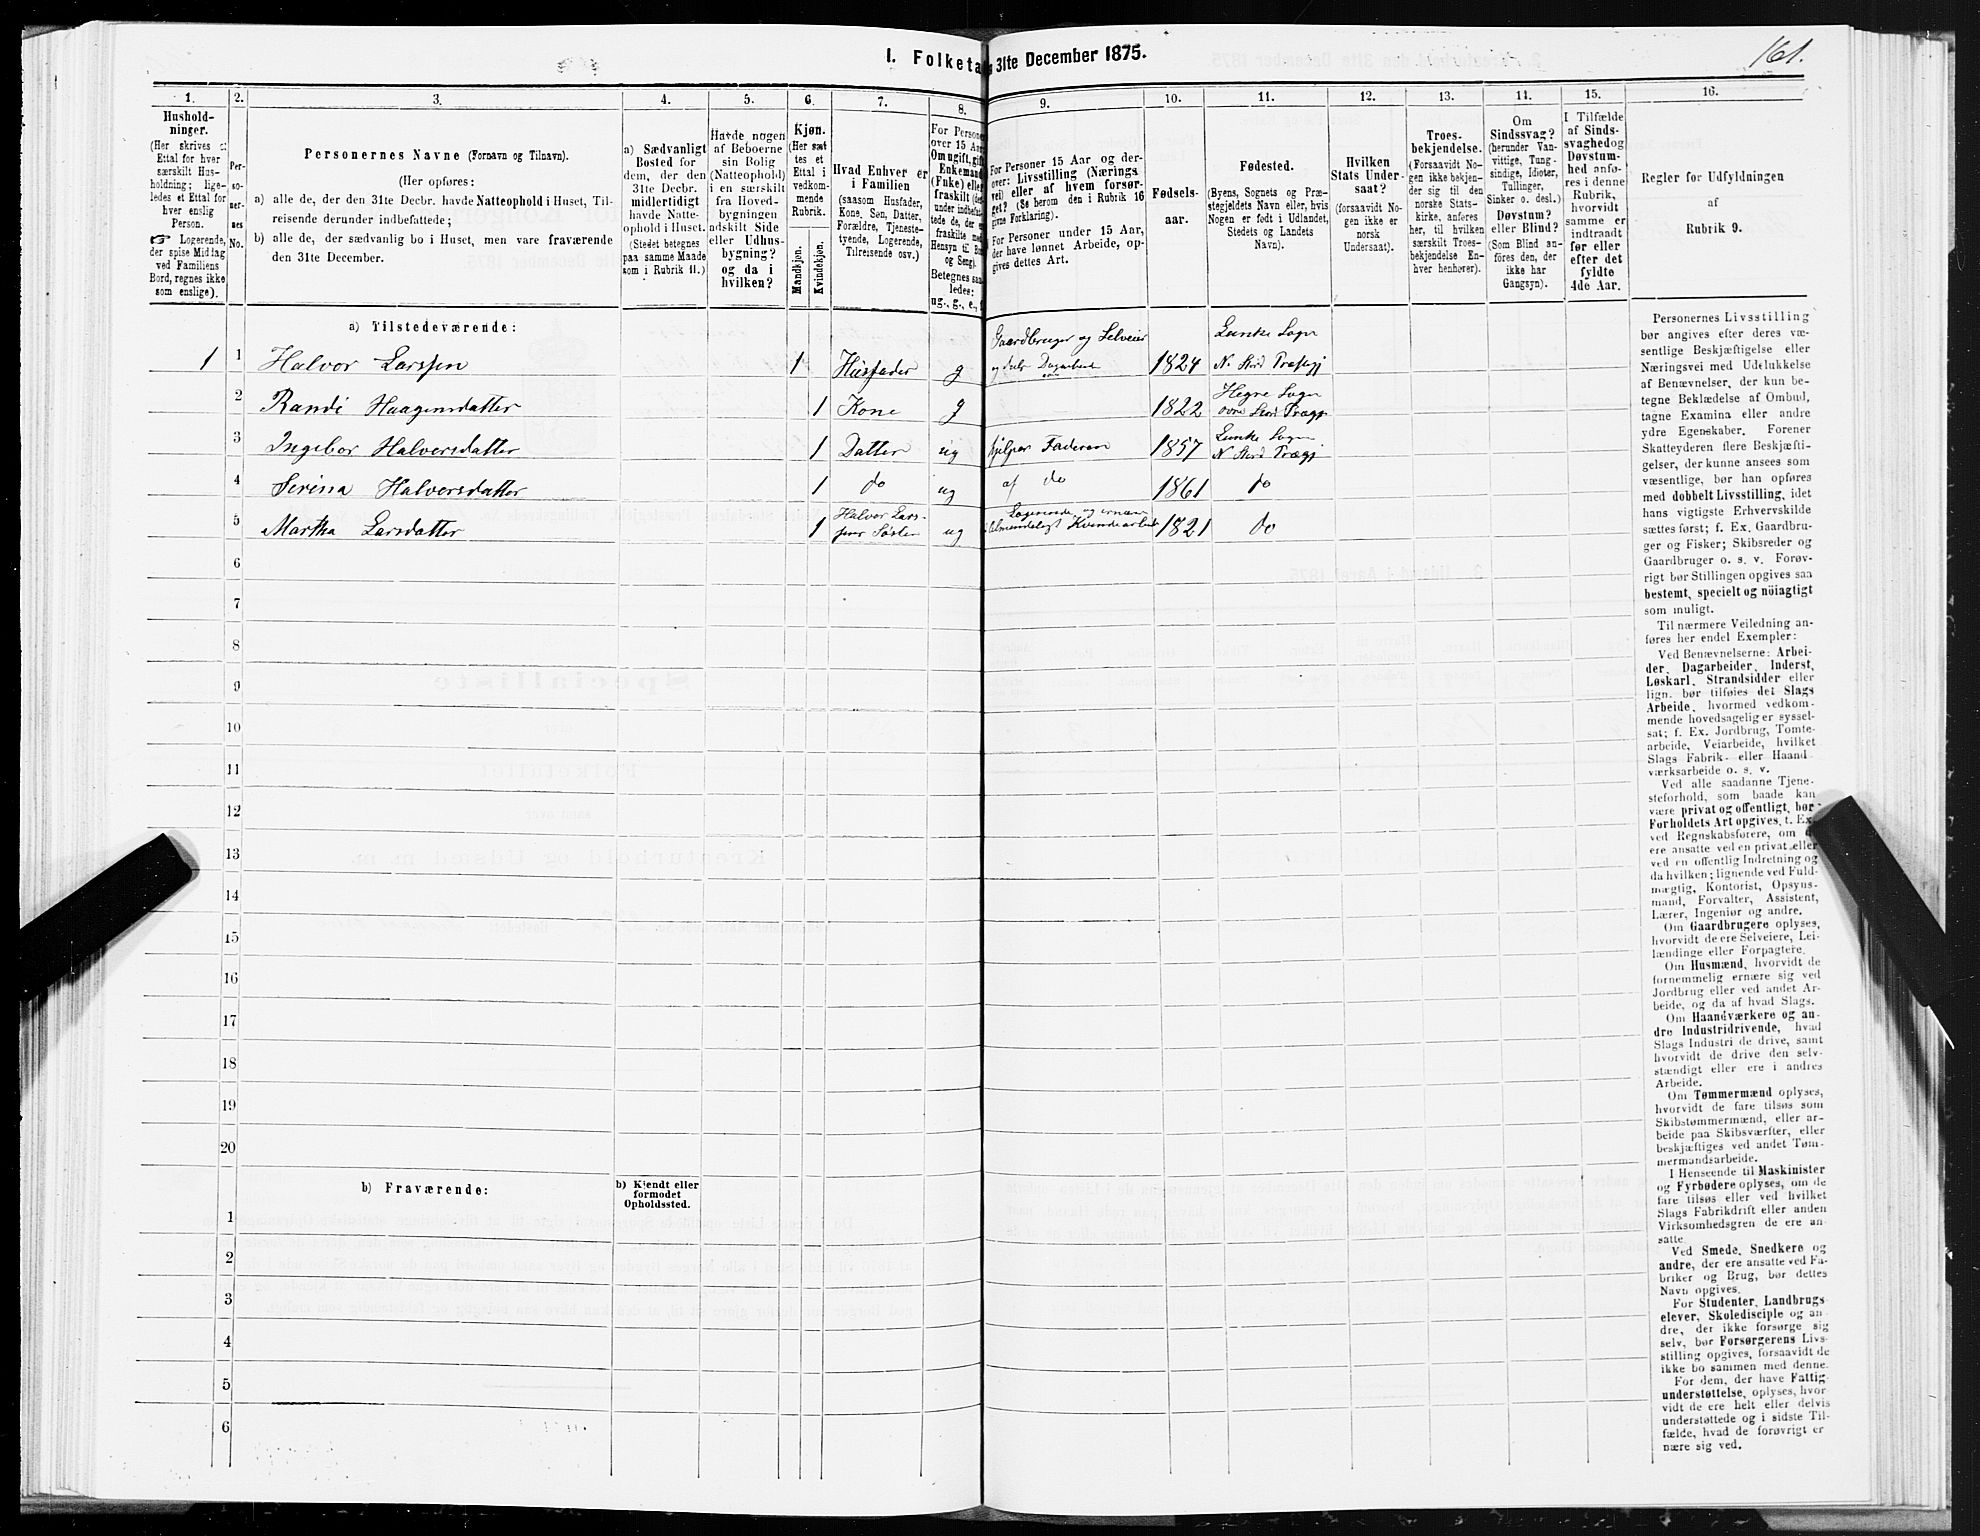 161.
I. Folketa 31te December 1875.
1. 2. 3. 4. 5. 6. 7. 8. 9. 10. 11. 12. 13. 14. 15. 16.
Hushold-
ninger.
(Her skrives et
Ettal for hver
særskilt Hus-
holdning; lige-
ledes et Ettal for
hver enslig
Person.
☞ Logerende,
der spise Middag
ved Familiens
Bord, regnes ikke
som enslige).
Per-
so-
ner-
nes
No.
Personernes Navne (Fornavn og Tilnavn).
(Her opføres:
a) alle de, der den 31te Decbr. havde Natteophold i Huset, Til-
reisende derunder indbefattede;
b) alle de, der sædvanlig bo i Huset, men vare fraværende
den 31te December.
a) Sædvanligt
Bosted for
dem, der den
31te Decbr.
midlertidigt
havde Natte-
ophold i Huset.
(Stedet betegnes
paa samme Maade
som i Rubrik 11.)
Havde nogen
af Beboerne
sin Bolig
(Natteophold)
i en særskilt
fra Hoved-
bygningen
adskilt Side
eller Udhus-
bygning?
og da i
hvilken?
Kjøn.
(Her sæt
tes et
Ettal i
vedkom-
mende
Rubrik.
Mandkjøn.
Kvindekjøn.
Hvad Enhver er
i Familien
(saasom Husfader,
Kone, Søn, Datter,
Forældre, Tjeneste-
tyende, Logerende,
Tilreisende osv.)
For Persone
over 15 Aar
Om ugift, gift
Enkemand
(Enke) eller
fraskilt (der-
under indbefat-
tede de, der ere
fraskilte med
Hensyn til Bord
og Seng).
Betegnes saa
ledes:
ug., g., e., f
For Personer 15 Aar og der-
over: Livsstilling (Nærings
vei) eller af hvem forsør-
get? (Se herom den i Rubrik 16
givne Forklaring).
For Personer under 15 Aar,
der have lønnet Arbeide, op-
gives dettes Art.
Fødsels-
aar.
Fødested.
(Byens, Sognets og Præ-
stegjeldets Navn eller, hvis
Nogen er født i Udlandet,
Stedets og Landets
Navn).
Hvilken
Stats Under-
saat?
(forsaavidt No-
gen ikke er
norsk
Undersaat).
Troes-
bekjendelse.
(Forsaavidt No-
gen ikke bekjen-
der sig til den
norske Stats-
kirke, anføres
her, til hvilken
særskilt Troes-
bekjendelse En-
hver henhører).
Om
Sindssvag?
(herunder Van-
vittige, Tung-
sindige, Idioter,
Tullinger,
Sinker o. desl.)
Døvstum?
eller Blind?
(Som Blind an-
føres den, der
ikke har
Gangsyn).
I Tilfælde
af Sinds-
svaghed og
Døvstum-
hed anfø-
res i denne
Rubrik,
hvorvidt
samme er
indtraadt
før eller
efter det
fyldte
4de Aar.
Regler for Udfyldningen
af
Rubrik 9.
a) Tilstedeværende:
1 1 Halvor Larssen 1 Husfader g Gaardbruger og Selveier
og dels Dagarbeid 1824 Lanke Sogn
N. Stjrd Præstgj
2 Randi Haagensdatter 1 Kone g 1822 Hegne Sogn
ovre Stjrd Prægj
3 Ingebor Halversdatter 1 Datter ug hjelper Faderen 1857 Lanke Sogn
N Stjrd Prægj
4 Serina Halversdatter 1 do ug af do 1861 do
5 Martha Larsdatter 1 Halvor Lars-
sens Søster ug Logerende og ernær
Almindeligt Kvindearbeide 1821 do
6
7
8
9
10
11
12
13
14
15
16
17
18
19
20
b) Fraværende:
b) Kjendt eller
formodet
Opholdssted.
1
2
3
4
5
6
Personernes Livsstilling
bør angives efter deres væ-
sentlige Beskjæftigelse eller
Næringsvei med Udelukkelse
af Benævnelser, der kun be-
tegne Beklædelse af Ombud,
tagne Examina eller andre
ydre Egenskaber. Forener
Skatteyderen flere Beskjæfti-
gelser, der kunne ansees som
væsentlige, bør han opføres
med dobbelt Livsstilling, idet
hans vigtigste Erhvervskilde
sættes først; f. Ex. Gaardbru-
ger og Fisker; Skibsreder og
Gaardbruger o. s. v. Forøv-
rigt bør Stillingen opgives saa
bestemt, specielt og nöiagtigt
som muligt.
Til nærmere Veiledning an-
føres her endel Exempler:
Ved Benævnelserne: Arbei-
der, Dagarbeider, Inderst,
Løskarl, Strandsidder eller
lign. bør tilføies det Slags
Arbeide, hvormed vedkom-
mende hovedsagelig er syssel-
sat; f. Ex. Jordbrug, Tomte-
arbeide, Veiarbeide, hvilket
Slags Fabrik- eller Haand-
værksarbeide o. s. v.
Ved alle saadanne Tjene-
steforhold, som baade kan
være privat og offentligt, bør
Forholdets Art opgives, t. Ex.
ved Regnskabsførere, om
ere ansatte ved en privat eller
ved en offentlig Indretning og
da hvilken; lignende ved Fuld-
mægtig, Kontorist, Opsyns-
mand, Forvalter, Assistent,
Lærer, Ingeniør og andre.
Om Gaardbrugere oplyses,
hvorvidt de ere Selveiere, Lei-
lændinge eller Forpagtere.
Om Husmænd, hvorvidt de
fornemmelig ernære sig ved
Jordbrug eller ved andet Ar-
beide, og da af hvad Slags.
Om Haandværkere og an-
dre Industridrivende, hvad
Slags Industri de drive, samt
hvorvidt de drive den selv-
stændigt eller ere i andres
Arbeide.
Om Tømmermænd oplyses,
hvorvidt de fare tilsøs som
Skibstømmermænd, eller ar-
beide paa Skibsværfter, eller
beskjæftiges ved andet Tøm-
mermandsarbeide.
I Henseende til Maskinister
og Fyrbødere oplyses, om de
fare tilsøs eller ved hvilket
Slags Fabrikdrift eller anden
Virksomhedsgren de ere an-
satte.
Ved Smede, Snedkere og
andre, der ere ansatte ved Fa-
briker og Brug, bør dettes
Navn opgives.
For Studenter, Landbrugs-
elever, Skoledisciple og an-
dre, der ikke forsørge sig
selv, bør Forsørgerens Livs-
stilling opgives, forsaavidt de
ikke bo sammen med denne.
For dem, der have Fattig-
understøttelse, oplyses, hvor
vidt de ere helt eller delvis
understøttede og i sidste Til-
fælde, hvad de forøvrigt er
nære sig ved.